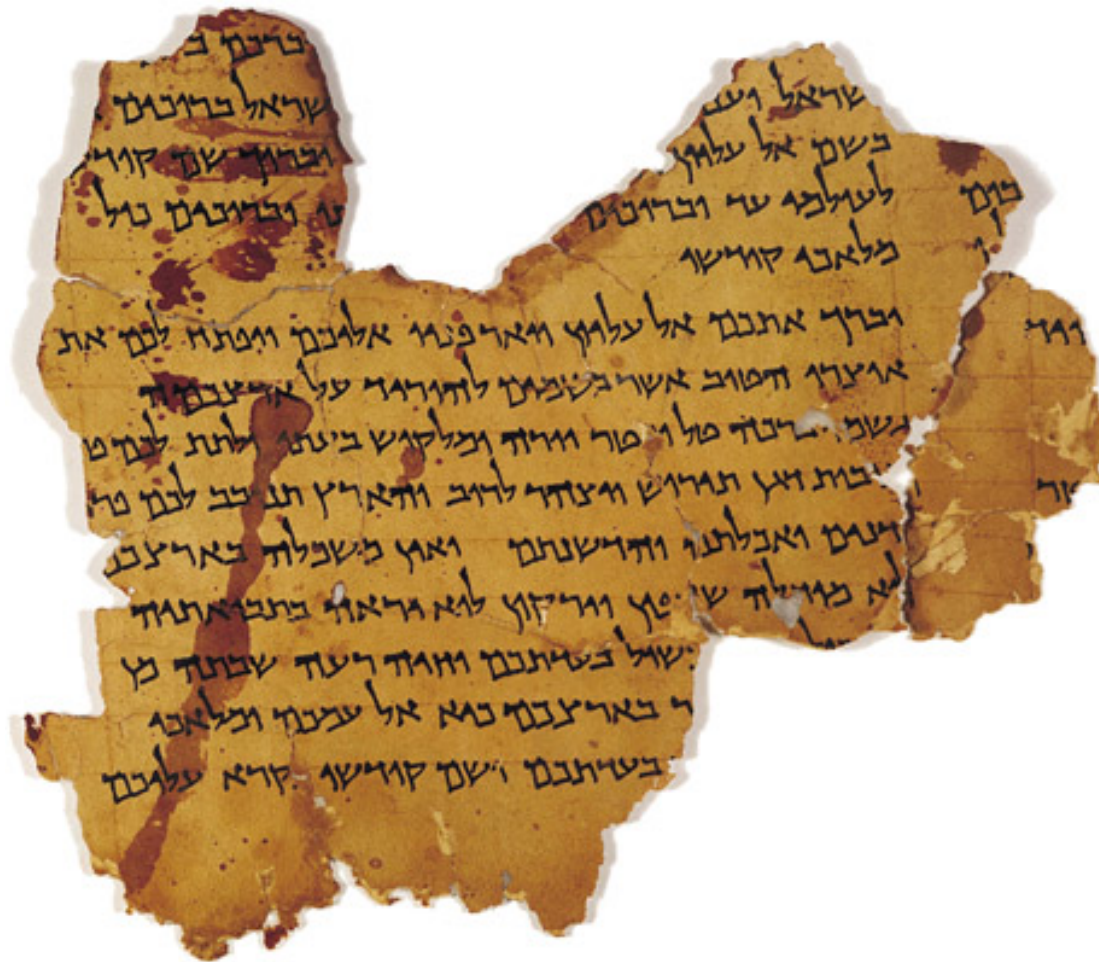 ברכם
שראל ישראל ברוכים
בשם אל עליון וברוך שם
לעולמי עד וברוכים וברוכים כול
מלאכי קודשו
יברך אתכם אל עליון ויאר פניו אליכם ויפתח לכם את
אוצרו הטוב אשר בשמים להוריד על ארצכם ה
גשמי ברכה טל ומטר יורה ומלקוש בעתו ולתת לכם פ
דגן תירוש ויצהר לרוב והארץ תנובב לכם פרי
דנים ואכלתם והדשנתם ואין משכלה בארצכם
ולוא מוחלה וירקון לוא יראה בתבואתיה
שול בעדתכם וחיה רעה שבתה מן
ר בארצכם כיא אל עמכם ומלאכי
בעדתכם ושם קודשו נקרא עליכם